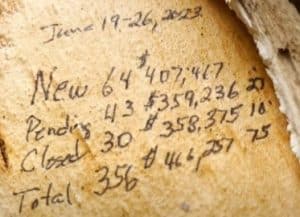 June 19-26, 2023
New 64 $407,467
Pending 43 $359,236 20
Closed 30 $358,375 18
Total 356 $466,257 75